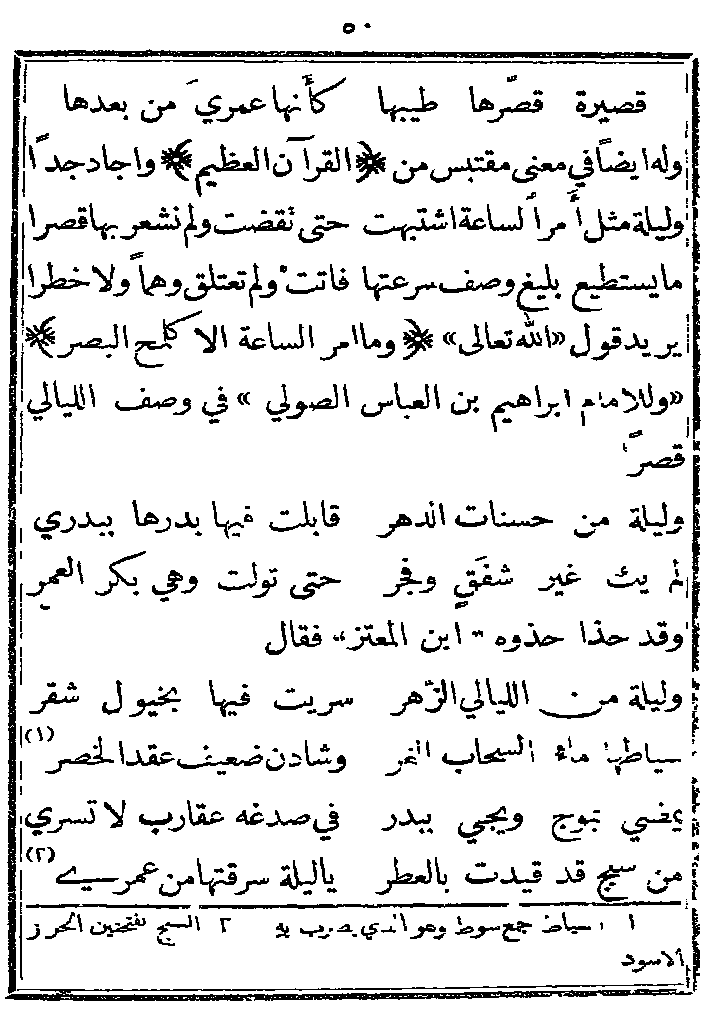 ٥٠
قصيرة قصّرها طيبها كأنها عمري من بعدها
وله ايضاً في معنى مقتبس من ﴿القرآن العظيم﴾ واجاد جداً
وليلة مثل أمر الساعة اشتبهت حتى نقضت ولم نشعر بها قصرا
ما يستطيع بليغ وصف سرعتها فاتت ولم تعتلق وهماً ولا خطرا
يريد قول «الله تعالى» ﴿وما امر الساعة الا كلمح البصر﴾
«وللامام ابراهيم بن العباس الصولي» في وصف الليالي
قصراً
وليلة من حسنات الدهر قابلت فيها بدرها ببدري
لم يك غير شفَقٍ وفجر حتى تولت وهي بكر العمر
وقد حذا حذوه "ابن المعتز" فقال
وليلة من الليالي الزُهر سريت فيها بخيول شقر
سياطها ماء السحاب الغمر وشادن ضعيف عقد الخصر (١)
يمضي بموج ويجي ببدر في صدغه عقارب لا تسري
من سبج قد قيدت بالعطر ياليلة سرقتها من عمري (٢)
١ سياط جمع سوط وهو الذي يضرب به ٢ السبج بفتحتين الخرز
الاسود